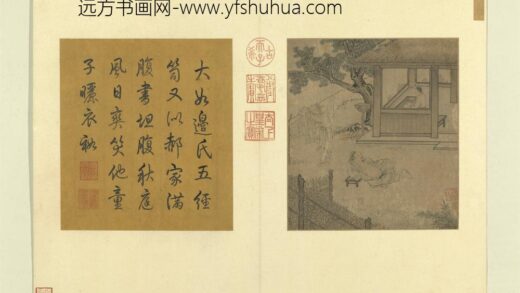 远方书画网-www.yfshuhua.com
大如邊氏五經
笥又似郝家滿
腹書坦腹秋庭
風日爽笑他童
子曬衣裾